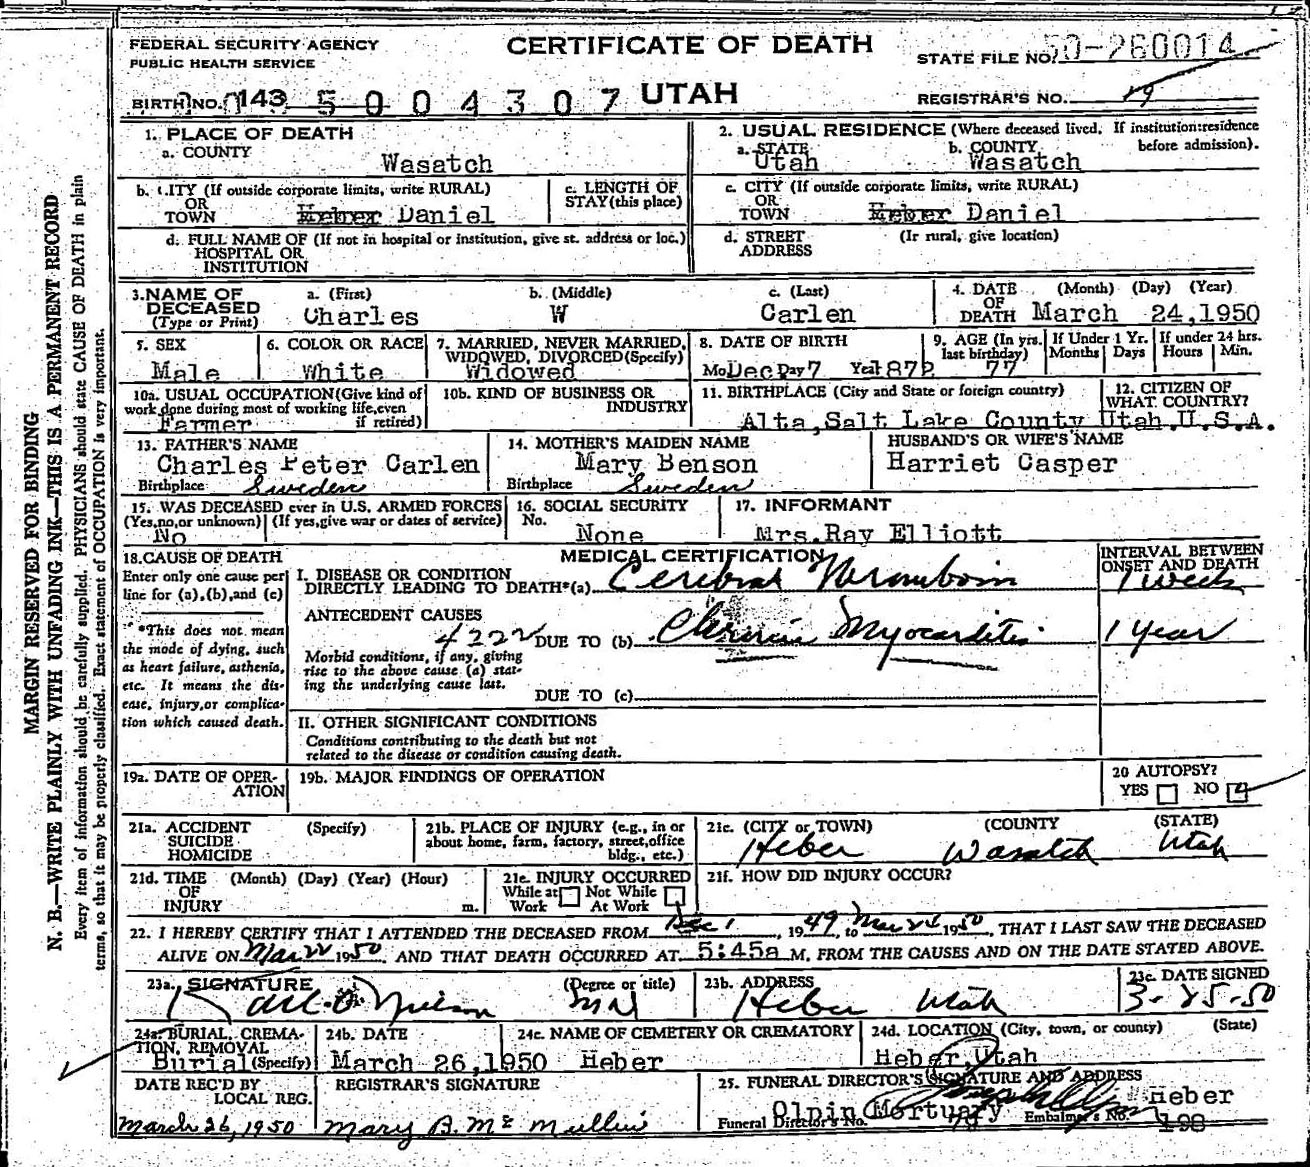 FEDERAL SECURITY AGENCY
PUBLIC HEALTH SERVICE
CERTIFICATE OF DEATH
STATE FILE NO. 50-260014
BIRTH NO. 143 5 0 0 4 3 0 7 UTAH
REGISTRAR'S NO. 19
1. PLACE OF DEATH
a. COUNTY Wasatch
2. USUAL RESIDENCE (Where deceased lived. If institution: residence before admission).
a. STATE Utah b. COUNTY Wasatch
b. CITY (If outside corporate limits, write RURAL) OR TOWN Heber Daniel
c. LENGTH OF STAY (this place)
c. CITY (If outside corporate limits, write RURAL) OR TOWN Heber Daniel
d. FULL NAME OF (If not in hospital or institution, give st. address or loc.) HOSPITAL OR INSTITUTION
d. STREET ADDRESS (If rural, give location)
3. NAME OF DECEASED (Type or Print) a. (First) Charles b. (Middle) W c. (Last) Carlen
4. DATE OF DEATH (Month) (Day) (Year) March 24,1950
5. SEX Male
6. COLOR OR RACE White
7. MARRIED, NEVER MARRIED, WIDOWED, DIVORCED (Specify) Widowed
8. DATE OF BIRTH Mo Dec Day 7 Year 1872
9. AGE (In yrs. last birthday) 77
If Under 1 Yr. Months Days
If under 24 hrs. Hours Min.
10a. USUAL OCCUPATION (Give kind of work done during most of working life, even if retired) Farmer
10b. KIND OF BUSINESS OR INDUSTRY
11. BIRTHPLACE (City and State or foreign country) Alta, Salt Lake County Utah
12. CITIZEN OF WHAT COUNTRY? U.S.A.
13. FATHER'S NAME Charles Peter Carlen
Birthplace Sweden
14. MOTHER'S MAIDEN NAME Mary Benson
Birthplace Sweden
HUSBAND'S OR WIFE'S NAME Harriet Casper
15. WAS DECEASED ever in U.S. ARMED FORCES (Yes, no, or unknown) (If yes, give war or dates of service) No
16. SOCIAL SECURITY No. None
17. INFORMANT Mrs. Ray Elliott
18. CAUSE OF DEATH
Enter only one cause per line for (a), (b), and (c)
MEDICAL CERTIFICATION
INTERVAL BETWEEN ONSET AND DEATH
I. DISEASE OR CONDITION DIRECTLY LEADING TO DEATH*(a) Cerebral Thrombosis 1 week
ANTECEDENT CAUSES
4222 DUE TO (b) Chronic Myocarditis 1 year
*This does not mean the mode of dying, such as heart failure, asthenia, etc. It means the disease, injury, or complication which caused death.
Morbid conditions, if any, giving rise to the above cause (a) stating the underlying cause last.
DUE TO (c)
II. OTHER SIGNIFICANT CONDITIONS
Conditions contributing to the death but not related to the disease or condition causing death.
19a. DATE OF OPERATION
19b. MAJOR FINDINGS OF OPERATION
20 AUTOPSY?
YES NO
21a. ACCIDENT SUICIDE HOMICIDE (Specify)
21b. PLACE OF INJURY (e.g., in or about home, farm, factory, street, office bldg., etc.)
21c. (CITY or TOWN) (COUNTY (STATE)
Heber Wasatch Utah
21d. TIME OF INJURY (Month) (Day) (Year) (Hour) m.
21e. INJURY OCCURRED While at Work Not While At Work
21f. HOW DID INJURY OCCUR?
22. I HEREBY CERTIFY THAT I ATTENDED THE DECEASED FROM Dec 1, 1949, to Mar 24 1950, THAT I LAST SAW THE DECEASED
ALIVE ON Mar 22 1950 AND THAT DEATH OCCURRED AT 5:45a M, FROM THE CAUSES AND ON THE DATE STATED ABOVE.
23a. SIGNATURE (Degree or title) Karl O Nielson MD
23b. ADDRESS Heber Utah
23c. DATE SIGNED 3-25-50
24a. BURIAL, CREMATION, REMOVAL (Specify) Burial
24b. DATE March 26,1950
24c. NAME OF CEMETERY OR CREMATORY Heber
24d. LOCATION (City, town, or county) (State) Heber Utah
DATE REC'D BY LOCAL REG. March 26, 1950
REGISTRAR'S SIGNATURE Mary B. Mc Mullin
25. FUNERAL DIRECTOR'S SIGNATURE AND ADDRESS
Olpin Mortuary Heber
Funeral Director's No. 79 Embalmer's No. 198
MARGIN RESERVED FOR BINDING
N. B.—WRITE PLAINLY WITH UNFADING INK—THIS IS A PERMANENT RECORD
Every item of information should be carefully supplied. PHYSICIANS should state CAUSE OF DEATH in plain
terms, so that it may be properly classified. Exact statement of OCCUPATION is very important.